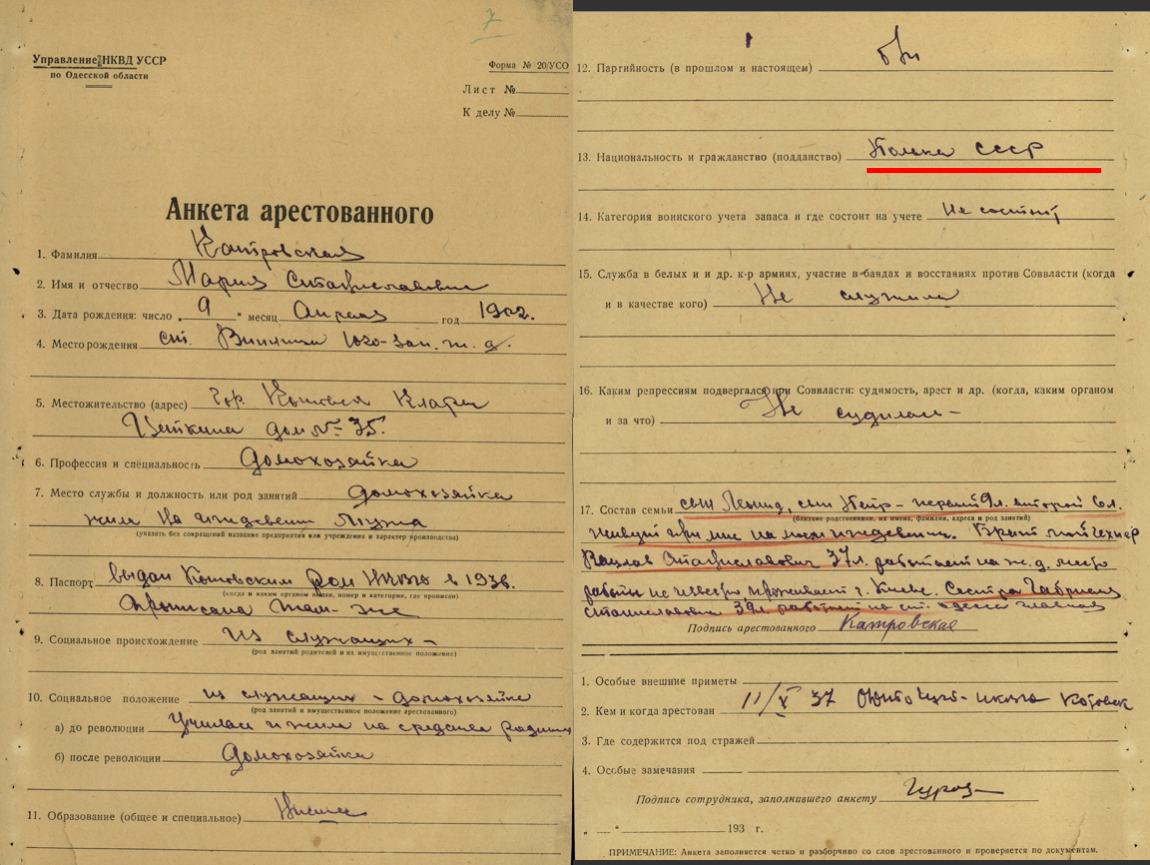 7
Управление НКВД УССР
по Одесской области
Форма № 20/УСО
Лист №
К делу №
Анкета арестованного
1. Фамилия Катровская
2. Имя и отчество Мария Станиславовна
3. Дата рождения: число „ 9 " месяц Апреля год 1902.
4. Место рождения ст. Винница Юго-зап. ж. д.
5. Местожительство (адрес) Гор. Котовск Клары
Цеткиной дом № 35.
6. Профессия и специальность домохозяйка
7. Место службы и должность или род занятий домохозяйка
жила на иждевении мужа
(указать без сокращений название предприятия или учреждения и характер производства)
8. Паспорт выдан Котовским Рай НКВД в 1936.
(когда и каким органом выдан, номер и категория, где прописан)
прописана там-же
9. Социальное происхождение Из служащих –
(род занятий родителей и их имущественное положение)
10. Социальное положение из служащих – домохозяйка
(род занятий и имущественное положение арестованного)
а) до революции Училась и жила на средства родит
б) после революции Домохозяйка
11. Образование (общее и специальное) Низшее
12. Партийность (в прошлом и настоящем) б/п
13. Национальность и гражданство (подданство) Полька СССР
14. Категория воинского учета запаса и где состоит на учете Не состоит
15. Служба в белых и и др. к-р армиях, участие в бандах и восстаниях против Соввласти (когда
и в качестве кого) Не служила
16. Каким репрессиям подвергался при Соввласти: судимость, арест и др. (когда, каким органом
и за что) Не судилась –
17. Состав семьи сын Леонид, сын Петр – первый 9 л. второй 6 л.
(близкие родственники, их имена, фамилии, адреса и род занятий)
живущи при мне на моем иждевении. Брат
Вацлав Станиславович 37 л. работает на ж. д. место
работы не известно проживает г. Киеве. Сестра Габриеля
Станиславовна 39 л. работает на ст. Одесса главная
Подпись арестованного Катровская
1. Особые внешние приметы
2. Кем и когда арестован 11/X 37 НКВД Котовск
3. Где содержится под стражей
4. Особые замечания
Подпись сотрудника, заполнившего анкету
„ — " 193 г.
ПРИМЕЧАНИЕ: Анкета заполняется четко и разборчиво со слов арестованного и проверяется по документам.